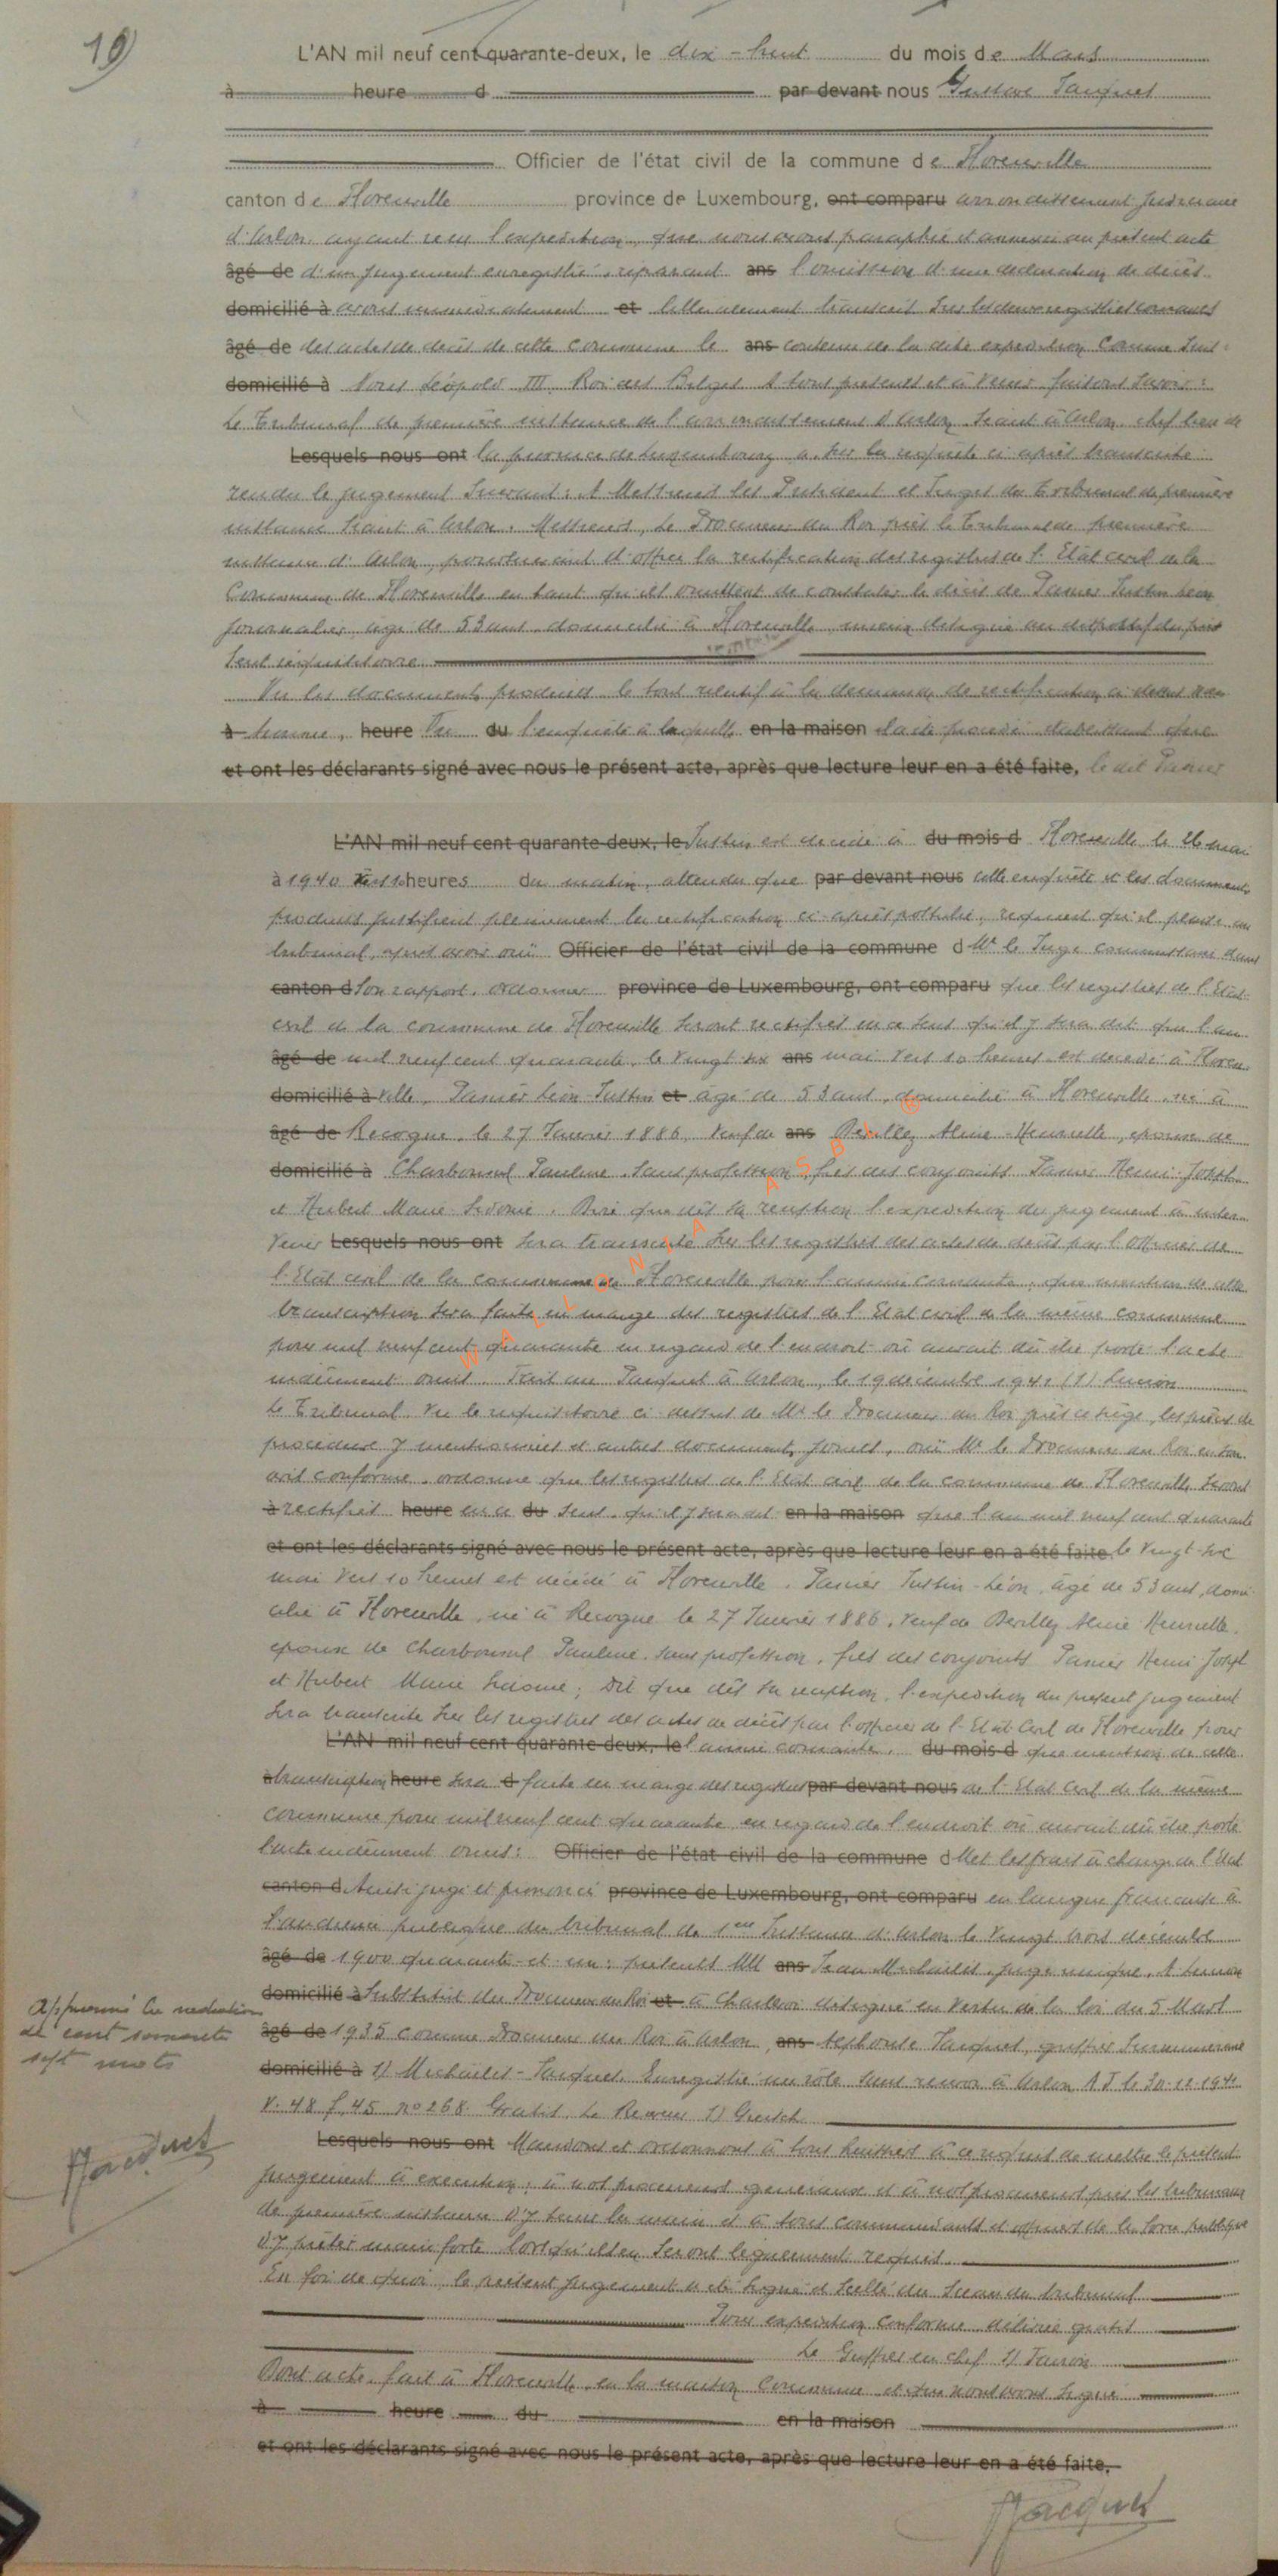 19
L'AN mil neuf cent quarante-deux, le dix-huit du mois de Mars
à heure d par devant nous Gustave Jacquet
Officier de l'état civil de la commune de Florenville
canton de Florenville province de Luxembourg, ont comparu arrondissement judiciaire
d'Arlon, ayant reçu l'expédition, que nous avons paraphée et annexée au présent acte
âgé de d'un jugement enregistré, réparant ans l'omission d'une déclaration de décès
domicilié à avons immédiatement et littéralement transcrit sur les deux registres courants
âgé de des actes de décès de cette commune le ans contenu de la dite expédition comme suit :
domicilié à Nous Léopold III Roi des Belges A tous présents et à venir faisons savoir :
Le Tribunal de première instance de l'arrondissement d'Arlon séant à Arlon, chef lieu de
Lesquels nous ont la province de Luxembourg a, sur la requête ci après transcrite
rendu le jugement suivant : A Messieurs les Président et Juges du Tribunal de première
instance séant à Arlon. Messieurs, Le Procureur du Roi près le Tribunal de première
instance d'Arlon, poursuivant d'office la rectification des registres de l'Etat civil de la
Commune de Florenville en tant qu'ils omettent de constater le décès de Panier Justin Léon
journalier, âgé de 53 ans, domicilié à Florenville, mieux désigné au dispositif du pré
sent réquisitoire
Vu les documents produits le tout relatif à la demande de rectification ci dessus
à heure du l'enquête à laquelle en la maison il a été procédé établissant que
et ont les déclarants signé avec nous le présent acte, après que lecture leur en a été faite, le dit Panier
L'AN mil neuf cent quarante-deux, le Justin est décédé à du mois d Florenville le 26 mai
à 1940 vers 10 heures du matin, attendu que par devant nous cette enquête et les documents
produits justifient pleinement la rectification ci-après postulée, requiert qu'il plaise au
tribunal, après avoir ouï Officier de l'état civil de la commune d Mr le Juge commissaire dans
canton d son rapport, ordonner province de Luxembourg, ont comparu que les registres de l'Etat
civil de la commune de Florenville seront rectifiés en ce sens qu'il y sera dit que l'an
âgé de mil neuf cent quarante, le vingt six ans mai vers 10 heures est décédé à Floren
domicilié à ville, Panier Léon Justin et âgé de 53 ans, domicilié à Florenville, né à
âgé de Recogne, le 27 Janvier 1886, veuf de ans Devillez Aline-Henriette, époux de
domicilié à Charbonnel Pauline, sans profession, fils des conjoints Panier Henri Joseph
et Hubert Marie Sidonie. Dire que dès sa réception l'expédition du jugement à inter
venir Lesquels nous ont sera transcrite sur les registres des actes de décès par l'officier de
l'Etat civil de la commune de Florenville pour l'année courante, que mention de cette
transcription sera faite en marge des registres de l'Etat civil de la même commune
pour mil neuf cent quarante en regard de l'endroit où aurait dû être porté l'acte
indûment omis. Fait au Parquet à Arlon, le 19 décembre 1941 (s)
Le Tribunal. Vu le réquisitoire ci dessus de Mr le Procureur du Roi près ce siège, les pièces de
procédure y mentionnées et autres documents joints, ouï Mr le Procureur du Roi en son
avis conforme, ordonne que les registres de l'Etat civil de la commune de Florenville seront
à rectifiés heure en ce du sens qu'il y sera dit en la maison que l'an mil neuf cent quarante
et ont les déclarants signé avec nous le présent acte, après que lecture leur en a été faite, le vingt-six
mai vers 10 heures est décédé à Florenville, Panier Justin-Léon, âgé de 53 ans, domi
cilié à Florenville, né à Recogne le 27 Janvier 1886, veuf de Devillez Aline Henriette,
époux de Charbonnel Pauline, sans profession, fils des conjoints Panier Henri Joseph
et Hubert Marie Sidonie ; Dit que dès sa réception, l'expédition du présent jugement
sera transcrite sur les registres des actes de décès par l'officier de l'Etat Civil de Florenville pour
L'AN mil neuf cent quarante-deux, le l'année courante, du mois d que mention de cette
à transcription heure sera d faite en marge des registres par devant nous de l'Etat Civil de la même
commune pour mil neuf cent quarante en regard de l'endroit où aurait dû être porté
l'acte indûment omis : Officier de l'état civil de la commune d Met les frais à charge de l'Etat
canton d Ainsi jugé et prononcé province de Luxembourg, ont comparu en langue française à
l'audience publique du tribunal de 1ere Instance d'Arlon le vingt trois décembre
âgé de 1900 quarante et un ; présents MM ans Jean Michaëlis, juge unique, A.
domicilié à Substitut du Procureur du Roi et à Charleroi délégué en vertu de la loi du 5 Mars
âgé de 1935 comme Procureur du Roi à Arlon, ans Alphonse Jacquet, greffier surnuméraire
domicilié à s/ Michaëlis - Jacquet. Enregistré un rôle sans renvoi à Arlon A J le 30.12.1941
V. 48 f. 45 no 268. Gratis. Le Receveur s/ Greisch
Lesquels nous ont Mandons et ordonnons à tous huissiers à ce requis de mettre le présent
jugement à exécution ; à nos procureurs généraux et à nos procureurs près les tribunaux
de première instance d'y tenir la main et à tous commandants et officiers de la force publique
d'y prêter main forte lorsqu'ils en seront légalement requis.
En foi de quoi, le présent jugement a été signé et scellé du sceau du tribunal
Pour expédition conforme délivrée gratis
Le Greffier en chef s/
Dont acte, fait à Florenville, en la maison Communale et que nous avons signé
à heure du en la maison
et ont les déclarants signé avec nous le présent acte, après que lecture leur en a été faite,
GJacquet
Approuvé la radiation
de cent soixante
sept mots
GJacquet
WALLONIA ASBL ®